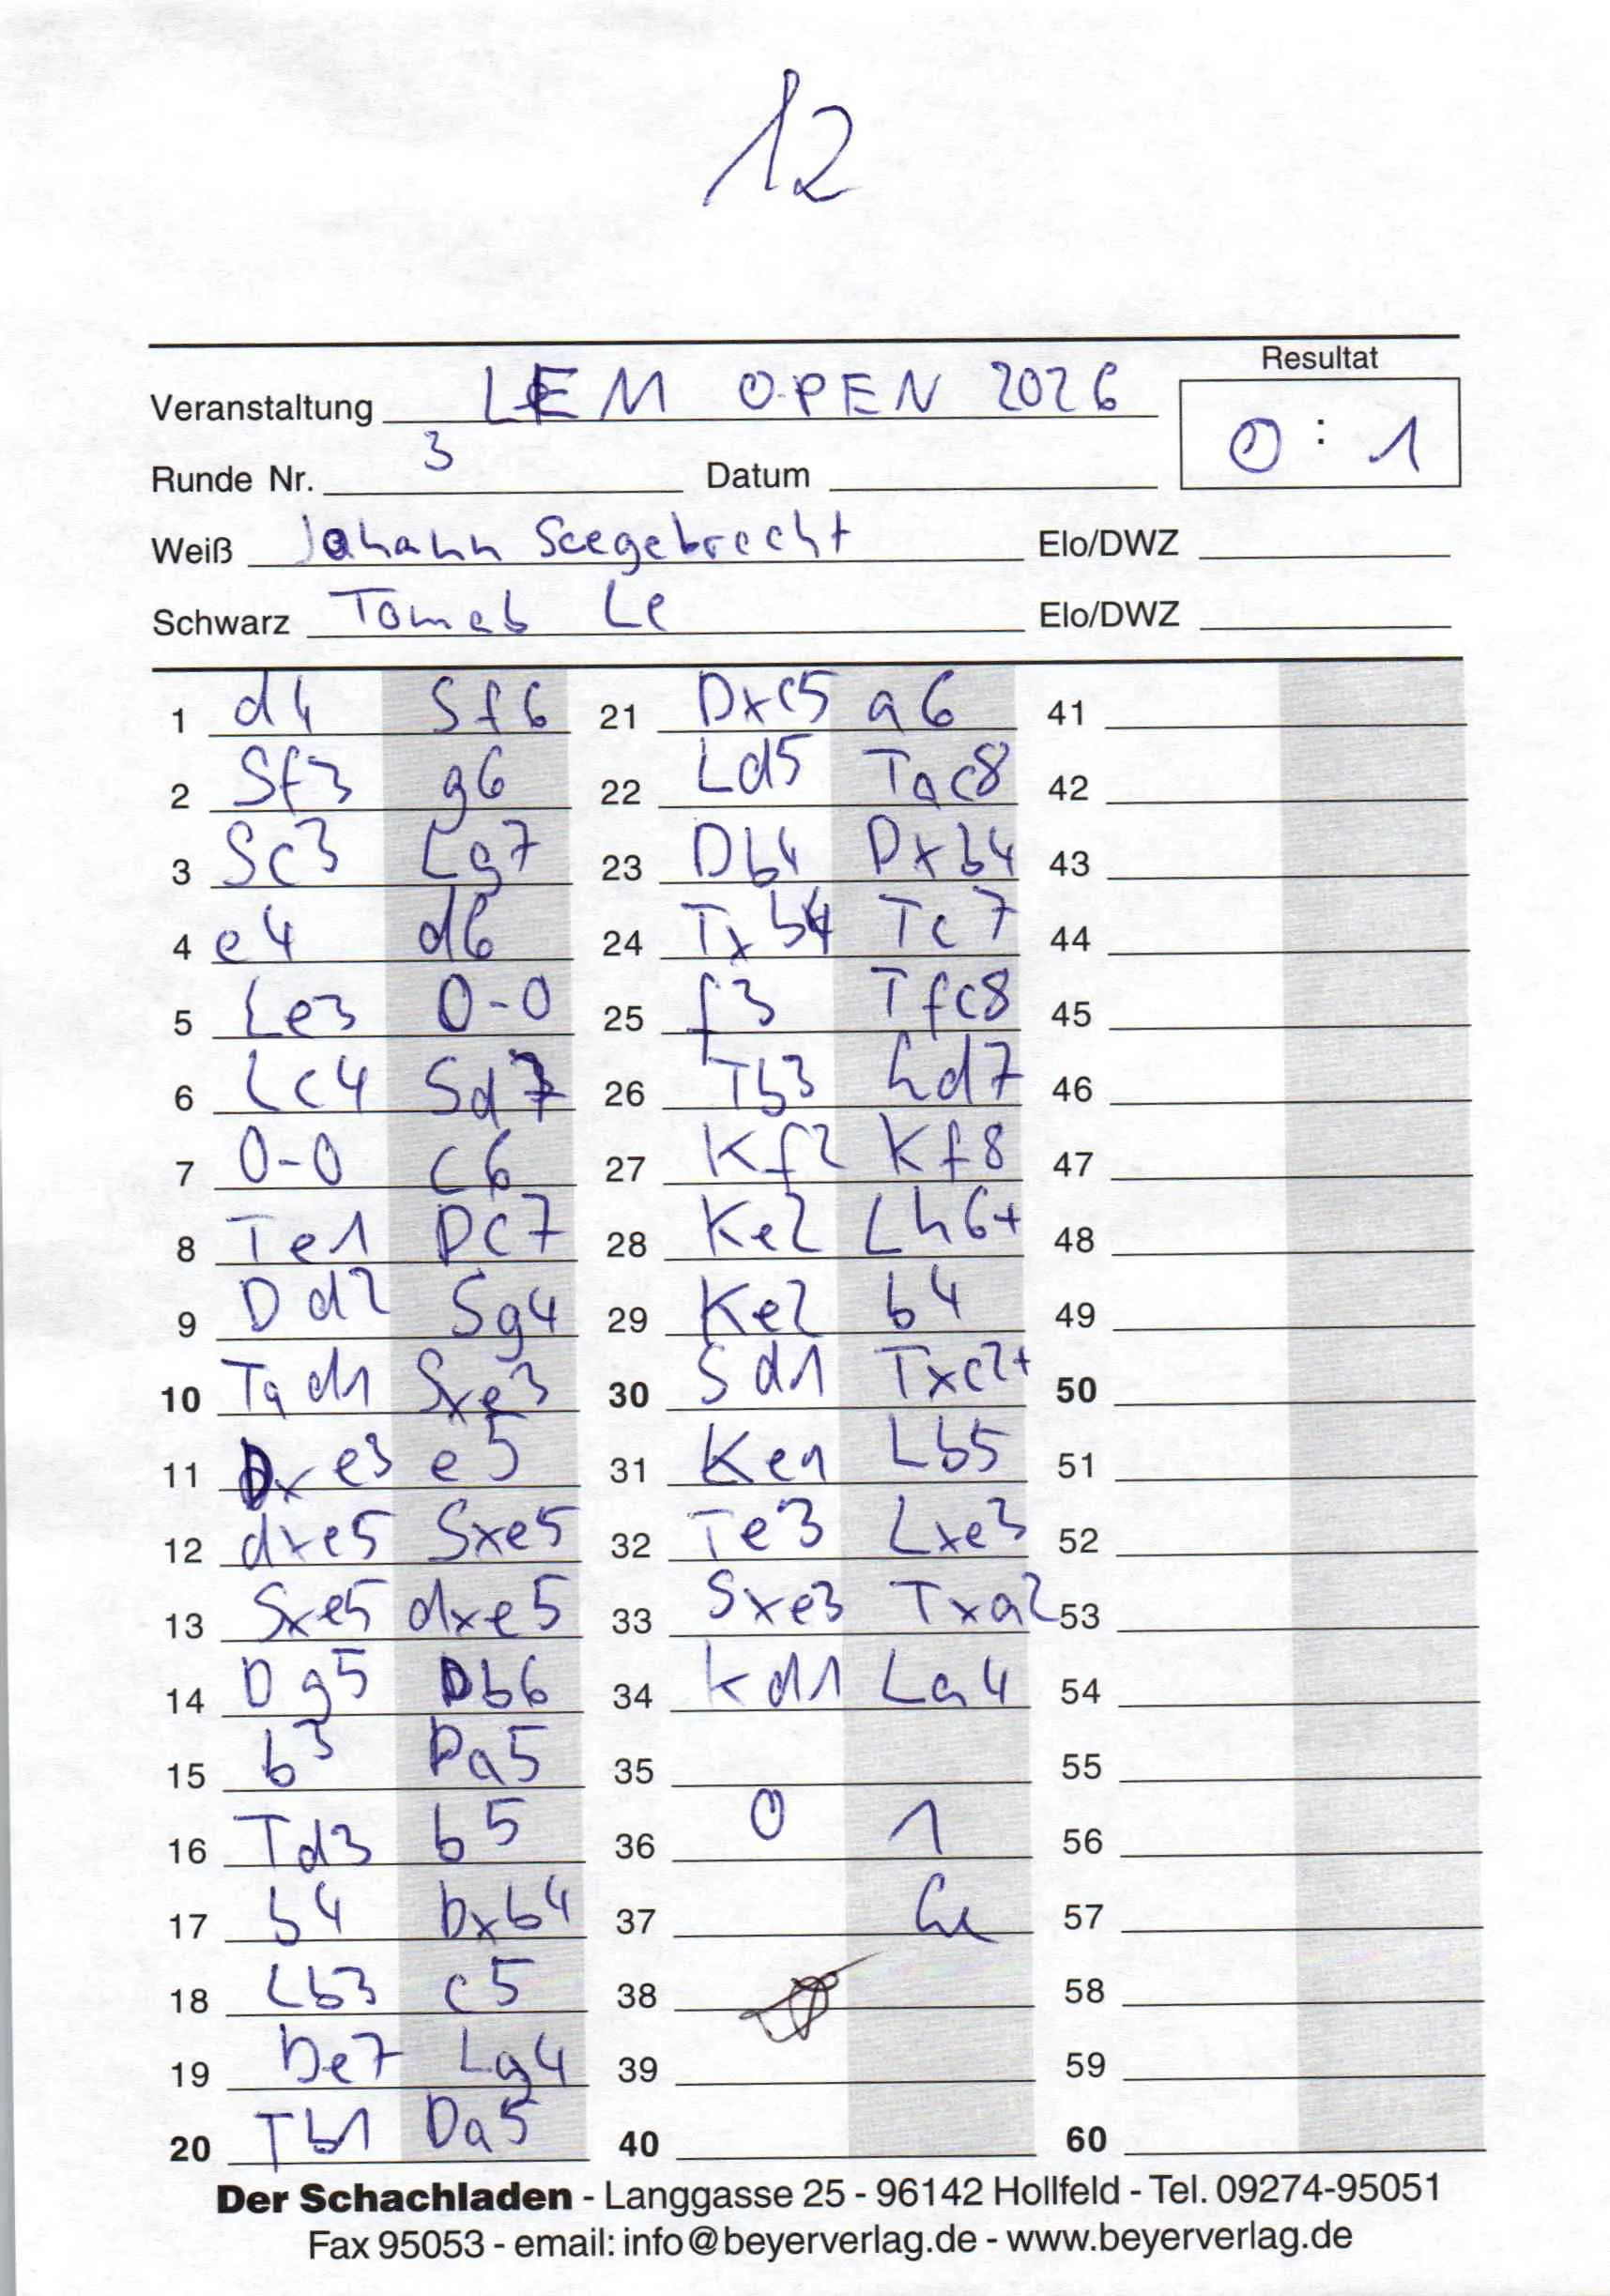 12
Resultat
Veranstaltung LEM OPEN 2026
0 : 1
Runde Nr. 3 Datum
Weiß Johann Seegebrecht Elo/DWZ
Schwarz Tomas Le Elo/DWZ
1 d4 Sf6 21 Dxc5 a6 41
2 Sf3 g6 22 Ld5 Tac8 42
3 Sc3 Lg7 23 Db4 Dxb4 43
4 e4 d6 24 Txb4 Tc7 44
5 Le3 0-0 25 f3 Tfc8 45
6 Lc4 Sd7 26 Tb3 Ld7 46
7 0-0 c6 27 Kf2 Kf8 47
8 Te1 Dc7 28 Ke2 Lh6+ 48
9 Dd2 Sg4 29 Ke2 b4 49
10 Tad1 Sxe3 30 Sd1 Txc2+ 50
11 Dxe3 e5 31 Ke1 Lb5 51
12 dxe5 Sxe5 32 Te3 Lxe3 52
13 Sxe5 dxe5 33 Sxe3 Txa2 53
14 Dg5 Db6 34 Kd1 La4 54
15 b3 Da5 35 55
16 Td3 b5 36 0 1 56
17 b4 Dxb4 37 Le 57
18 Lb3 c5 38 58
19 De7 Lg4 39 59
20 Tb1 Da5 40 60
Der Schachladen - Langgasse 25 - 96142 Hollfeld - Tel. 09274-95051
Fax 95053 - email: info@beyerverlag.de - www.beyerverlag.de